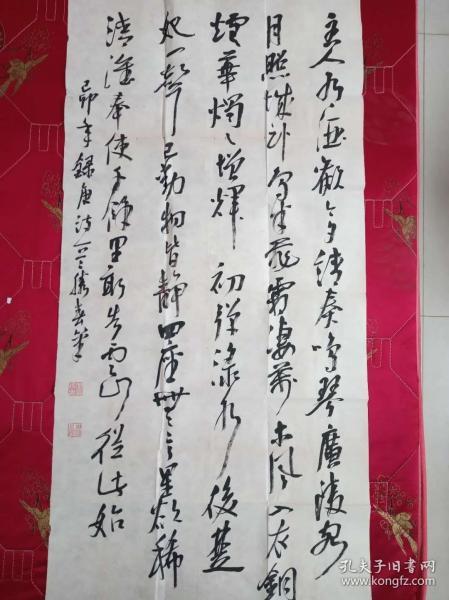 主人有酒歡今夕請奏鳴琴廣陵客
月照城头烏半飛霜凄萬木風入衣銅
爐華燭々增輝初彈渌水後楚
妃一聲已動物皆靜四座無言星欲稀
清淮奉使千餘里敢告雲山從此始
己卯年錄唐詩
孔夫子旧书网
www.kongfz.com